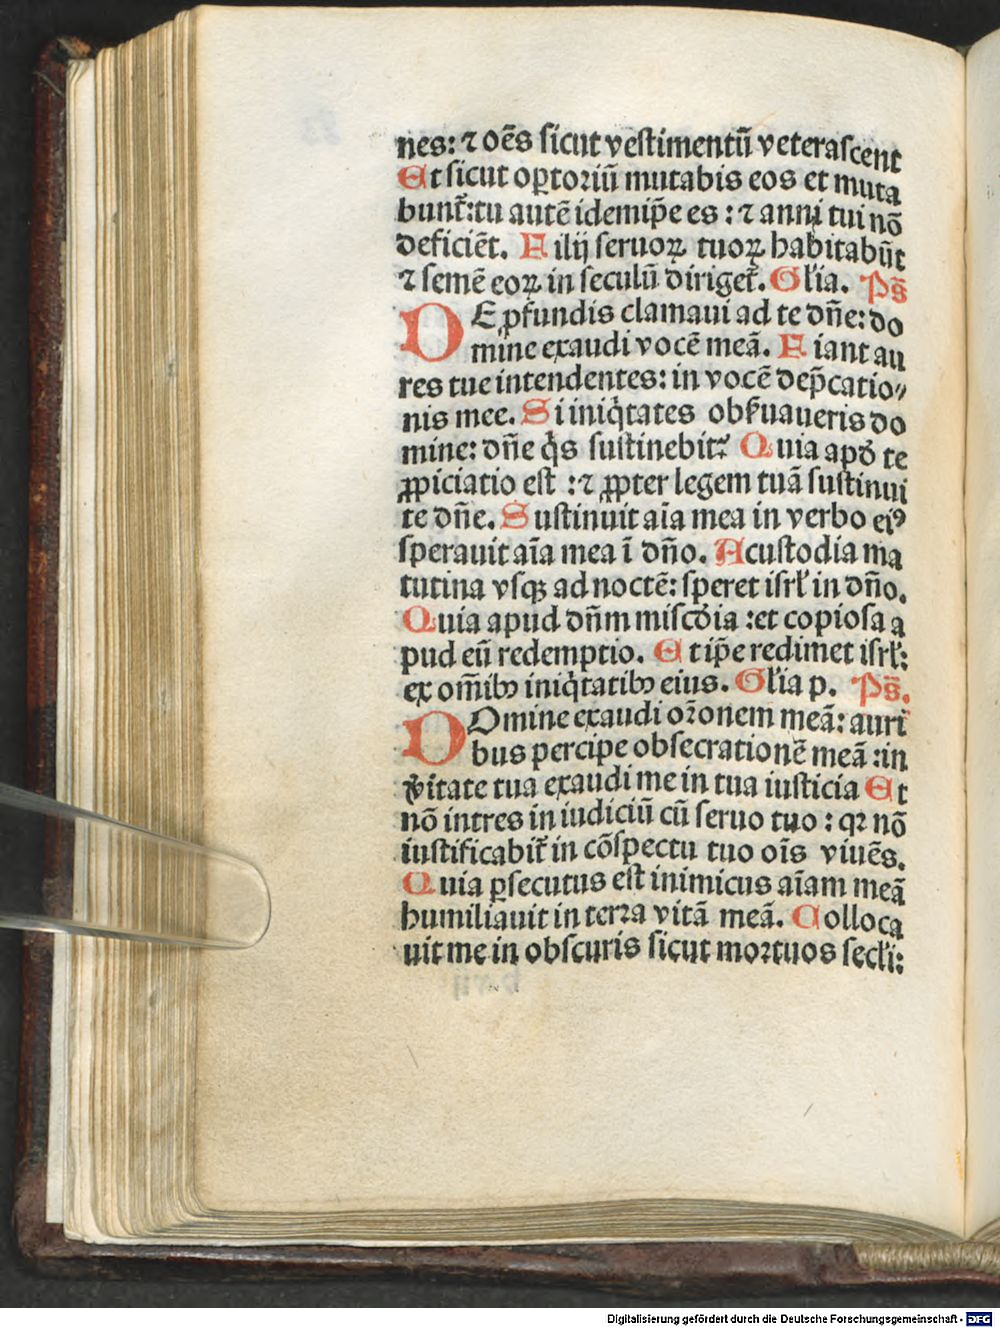 nes: ⁊ oēs sicut vestimentū veterascent
Et sicut oꝑtoꝛiū mutabis eos et muta
bunt᷑: tu autē idem ip̄e es : ⁊ anni tui nō
deficiēt. Filij seruoꝝ tuoꝝ habitabūt
⁊ semē eoꝝ in seculū diriget᷑. Gl'ia. Ps̄
DE ꝓfundis clamaui ad te dn̄e: do
mine exaudi vocē meā. Fiant au
res tue intendentes: in vocē dep̄catio⸗
nis mee. Si iniq̇tates obẜuaueris do
mine: dn̄e q̇s sustinebit? Quia apḋ te
ꝓpiciatio est : ⁊ ꝓpter legem tuā sustinui
te dn̄e. Sustinuit aīa mea in verbo eiꝰ
sperauit aīa mea ī dn̄o. A custodia ma
tutina vsqꝫ ad noctē: speret isrl' in dn̄o.
Quia apud dn̄m mīscďia : et copiosa a
pud eū redemptio. Et ip̄e redimet isrl':
ex om̄ibꝰ iniq̇tatibꝰ eius. Gl'ia p. Ps̄.
DOmine exaudi oꝛōnem meā: auri
bus percipe obsecrationē meā : in
v̓itate tua exaudi me in tua iusticia Et
nō intres in iudiciū cū seruo tuo : qꝛ nō
iustificabit᷑ in cōspectu tuo oīs viuēs.
Quia ꝑsecutus est inimicus aīam meā
humiliauit in terꝛa vitā meā. Colloca
uit me in obscuris sicut moꝛtuos secl'i:
Digitalisierung gefördert durch die Deutsche Forschungsgemeinschaft - DFG